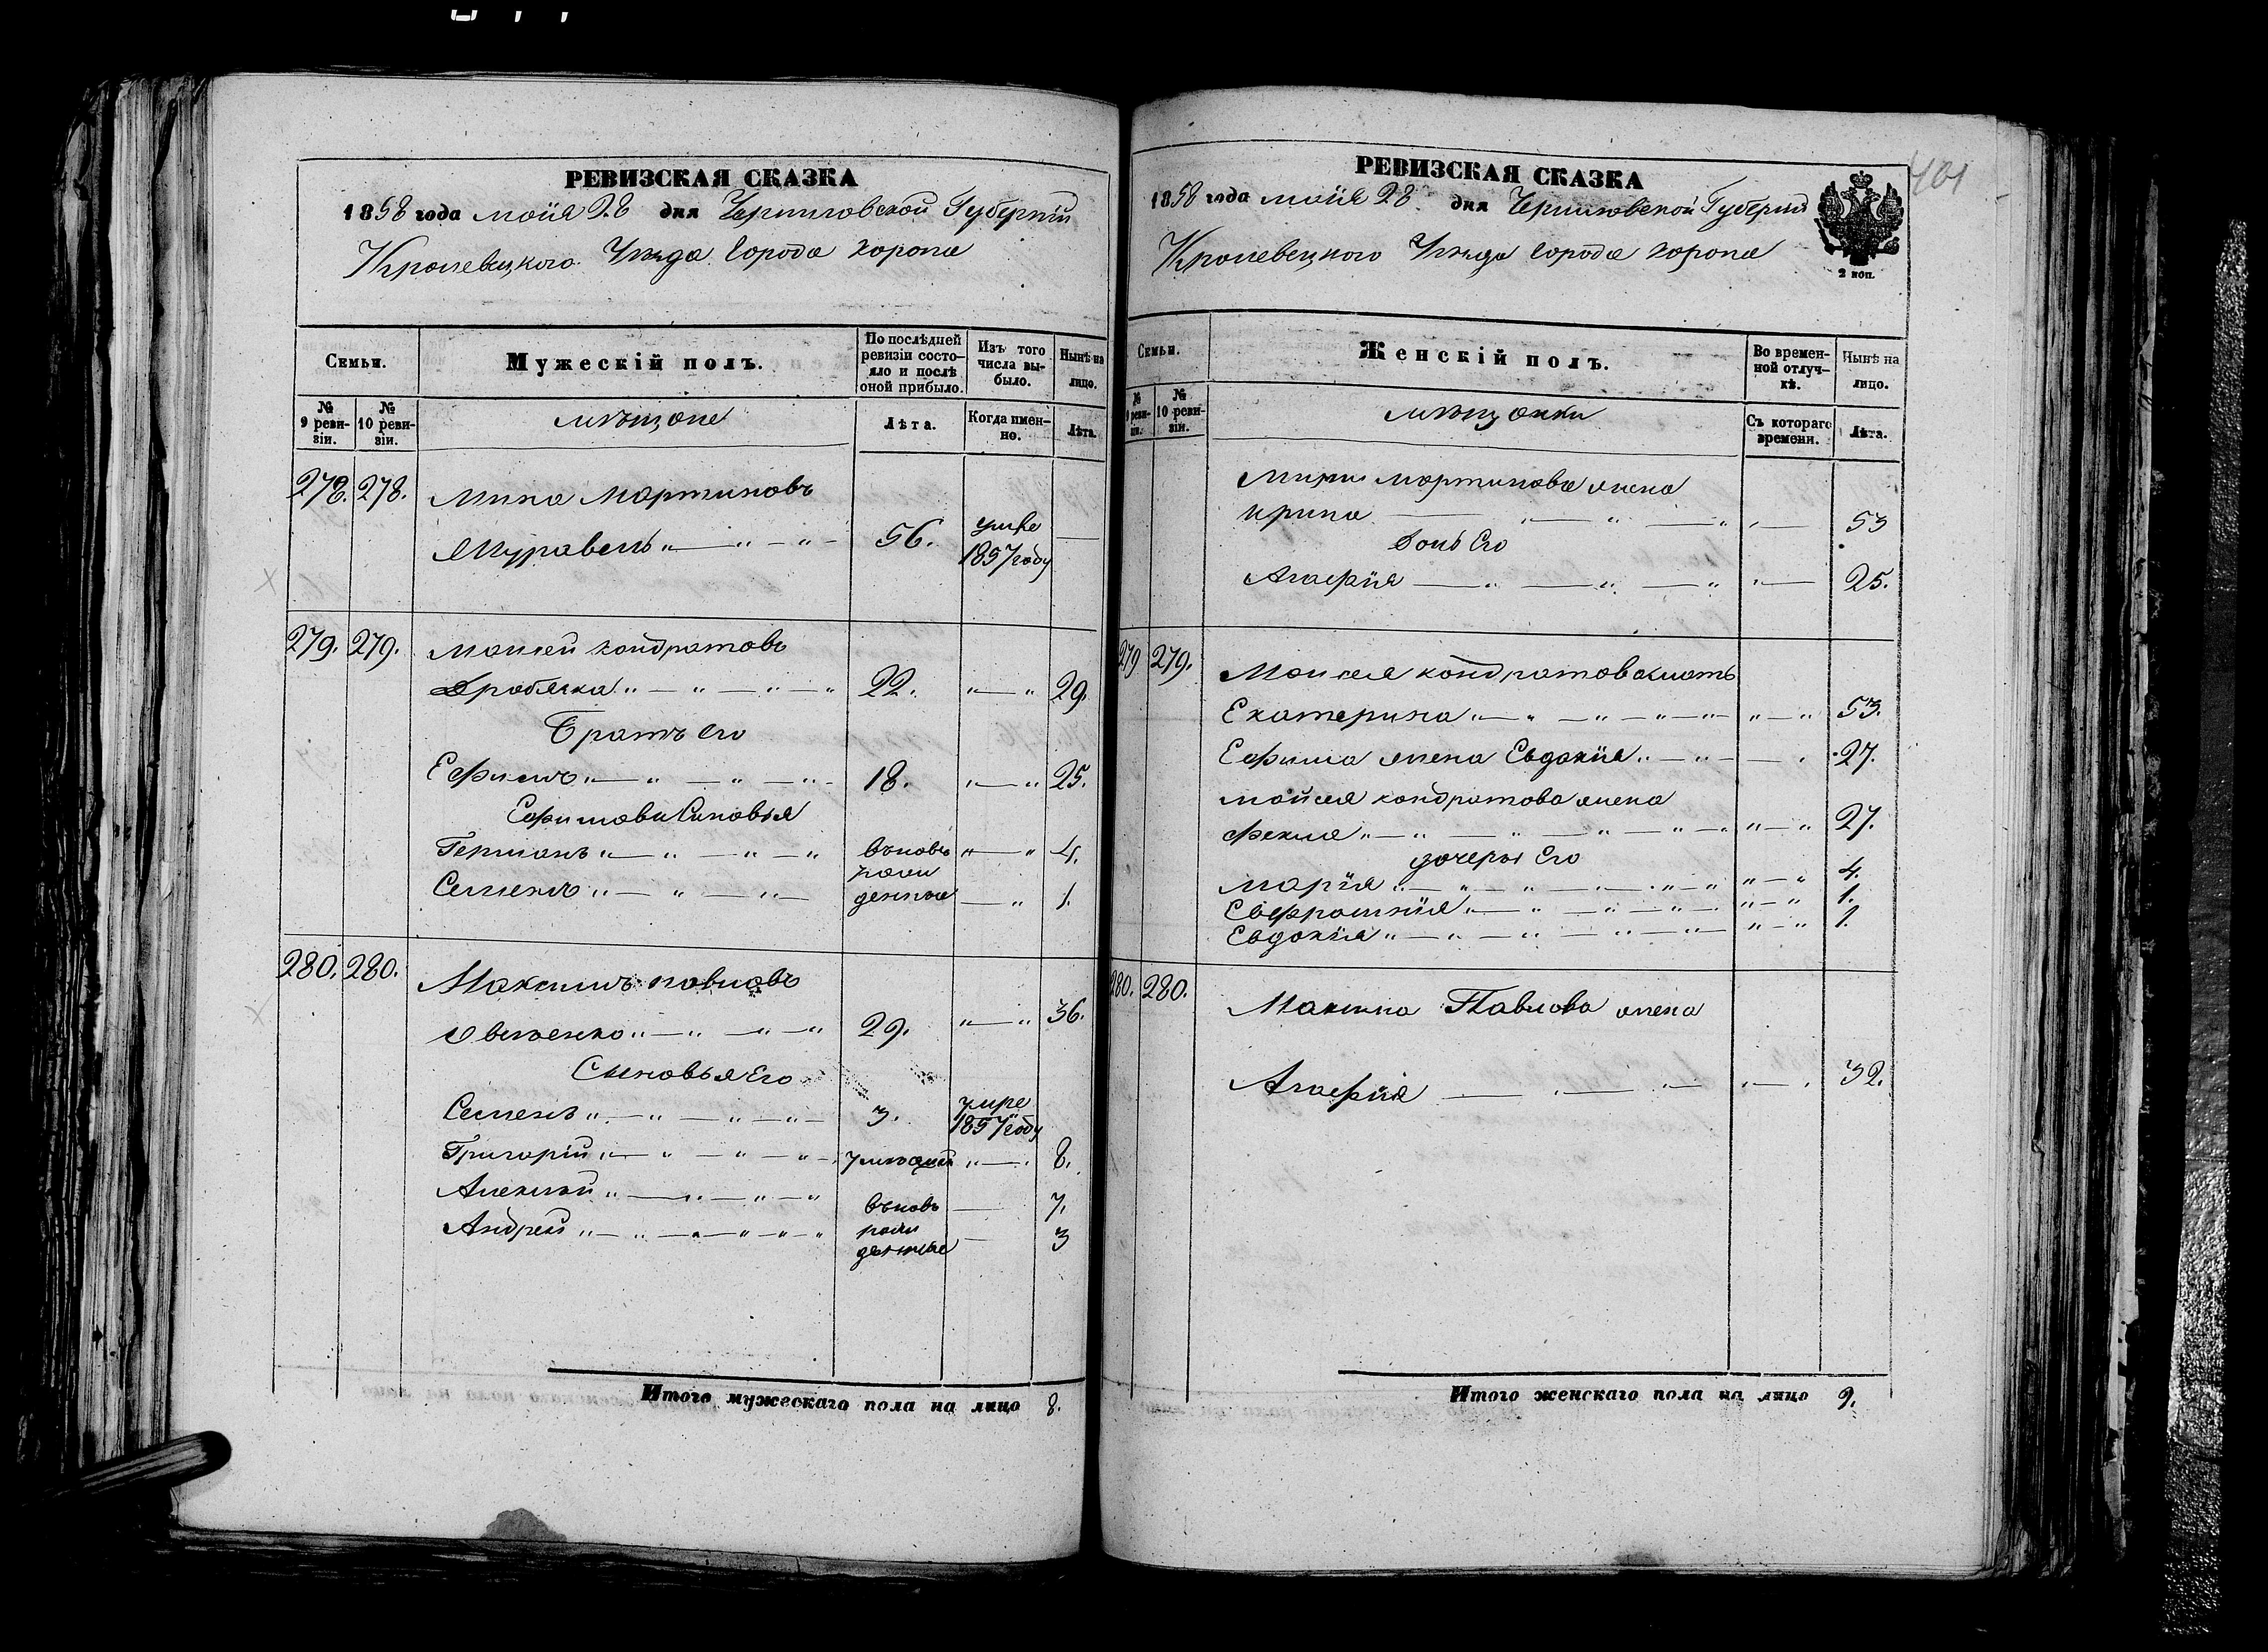 РЕВИЗСКАЯ СКАЗКА
1858 года моия 28 дня Черниговской Губернiи
Кролевецкого Уезда Города Коропа
Семьи.
Мужескiй полъ.
По послѣдней ревизiи состо-яло и послѣ оной прибыло.
Изъ того числа вы-было.
Нынѣ на лицо.
№ 9 реви-зiи.
№ 10 реви-зiи.
мѣщоне
Лѣта.
Когда имен-но.
Лѣта.
278. 278. Мина Мартиновъ
Журавель 56. умре 1857 году
279. 279. Моисей Кондратовъ
Дробязка 22. 29.
Братъ Его
Ефимъ 18. 25.
Ефимови Синовья
Германъ вновь 4.
рож
Семенъ денные 1.
280. 280. Максимъ Повловъ
29. 36.
Сыновья Его
Семенъ 3. умре 1857 году
Григорiй 8.
Алексѣй вновь 7.
Андрей рож 3
денные
Итого мужескаго пола на лицо 8.
401
РЕВИЗСКАЯ СКАЗКА
1858 года моия 28 дня Черниговской Губернiи
Кролевецкого Уезда Города Коропа
2 коп.
Семьи.
Женскiй полъ.
Во времен-ной отлуч-кѣ.
Нынѣ на лицо.
№ 9 реви-зiи.
№ 10 реви-зiи.
мѣщонки
Съ котораго времени.
Лѣта.
Мини Мортинова жена
Ирина 53
Дочь Его
Агафiя 25.
279 279. Моисея Кондратова мать
Екатерина 53.
Ефима жена Евдокiя 27.
Мойсея Кондратова жена
Фекла 27.
дочеры Его
Марiя 4.
Евфросинiя 1.
Евдокiя 1.
280. 280. Максима Павлова жена
Агафiя 32.
Итого женскаго пола на лицо 9.